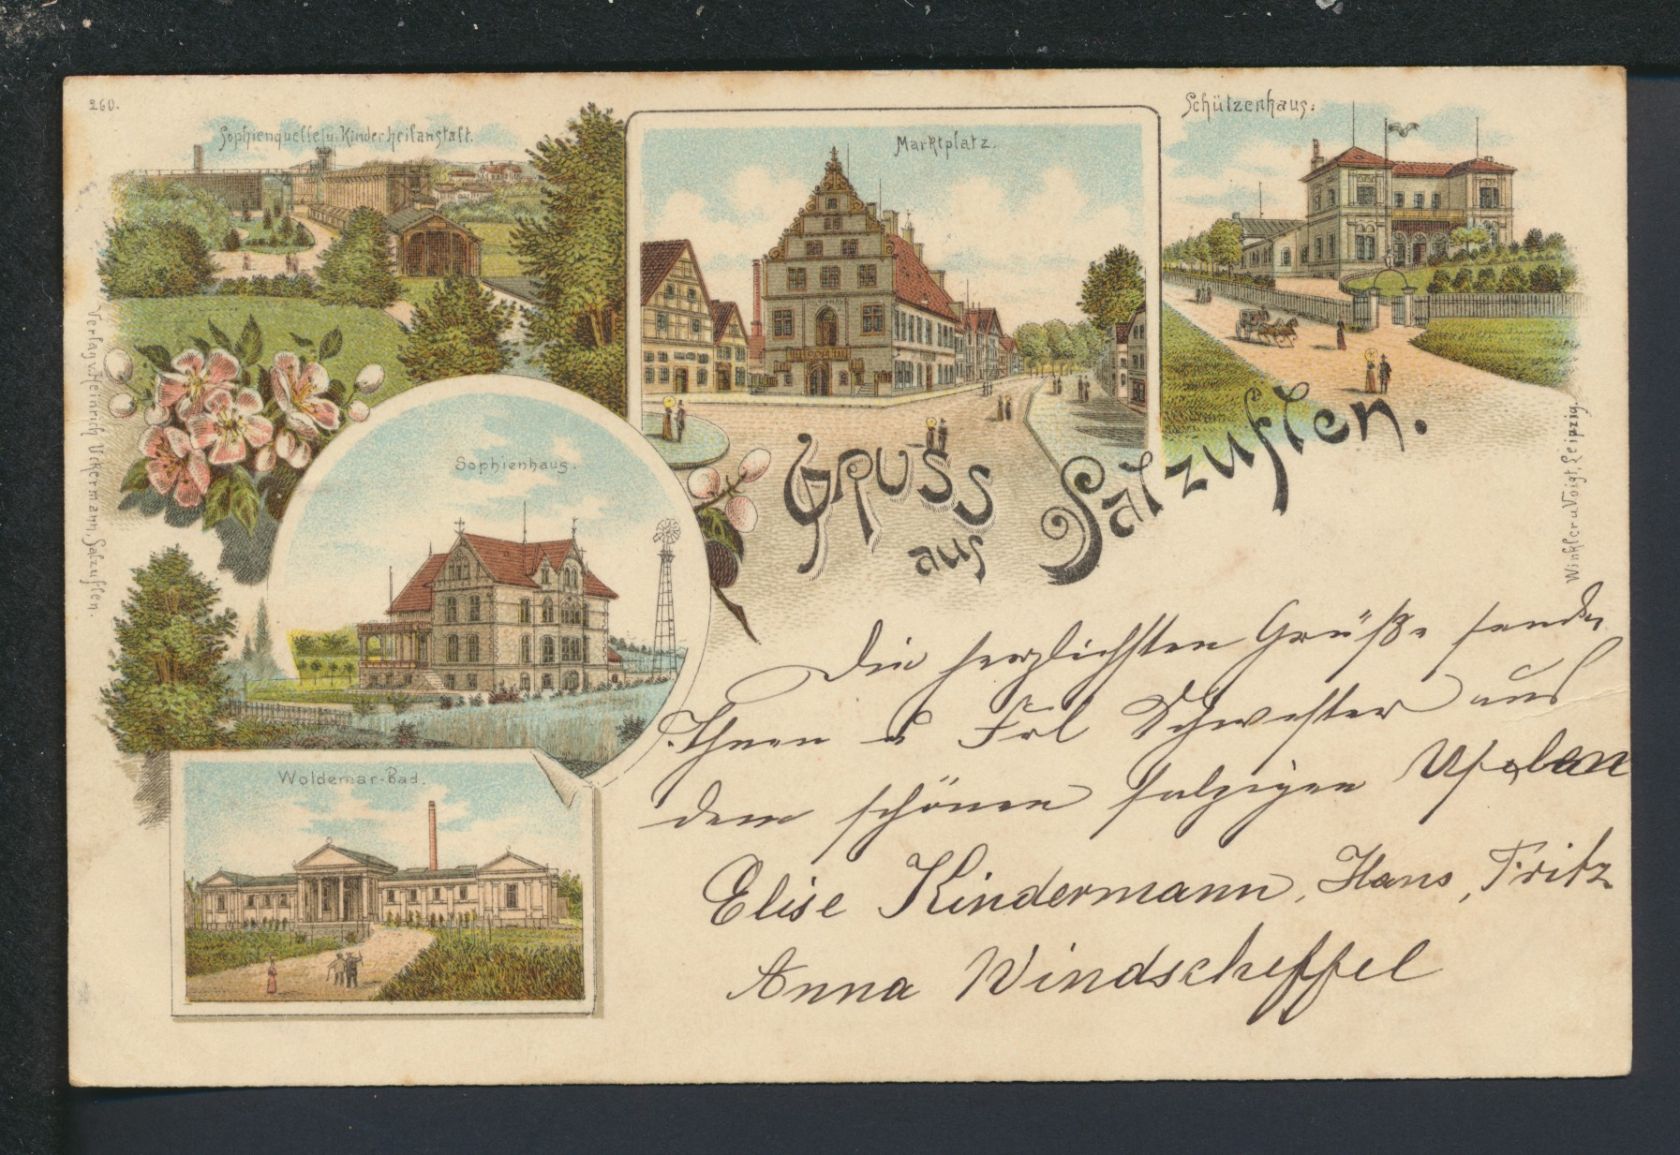 260.
Sophienquelle u. Kinderheilanstalt.
Marktplatz.
Schützenhaus.
Sophienhaus.
Woldemar-Bad.
Gruss
aus
Salzuflen.
Verlag v. Heinrich Uckermann, Salzuflen.
Winkler u. Voigt, Leipzig.
Die herzlichsten Grüße senden
Ihnen u Frl Schwester aus
dem schönen salzigen
Elise Kindermann, Hans, Fritz
Anna Windscheffel